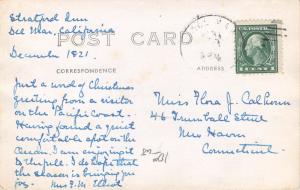 Stratford Inn
Del Mar, California
December 1921.
POST CARD
CORRESPONDENCE
ADDRESS
Just a word of Christmas
greeting from a visitor
on the Pacific Coast.
Having found a quiet
comfortable spot on the
Ocean. I am enjoying it
to the full. I do hope that
the season is bringing you
joy. Mrs F. M.
Miss Flora J. Calhoun
46 Trumbull Street
New Haven
Connecticut.
1 CENT 1